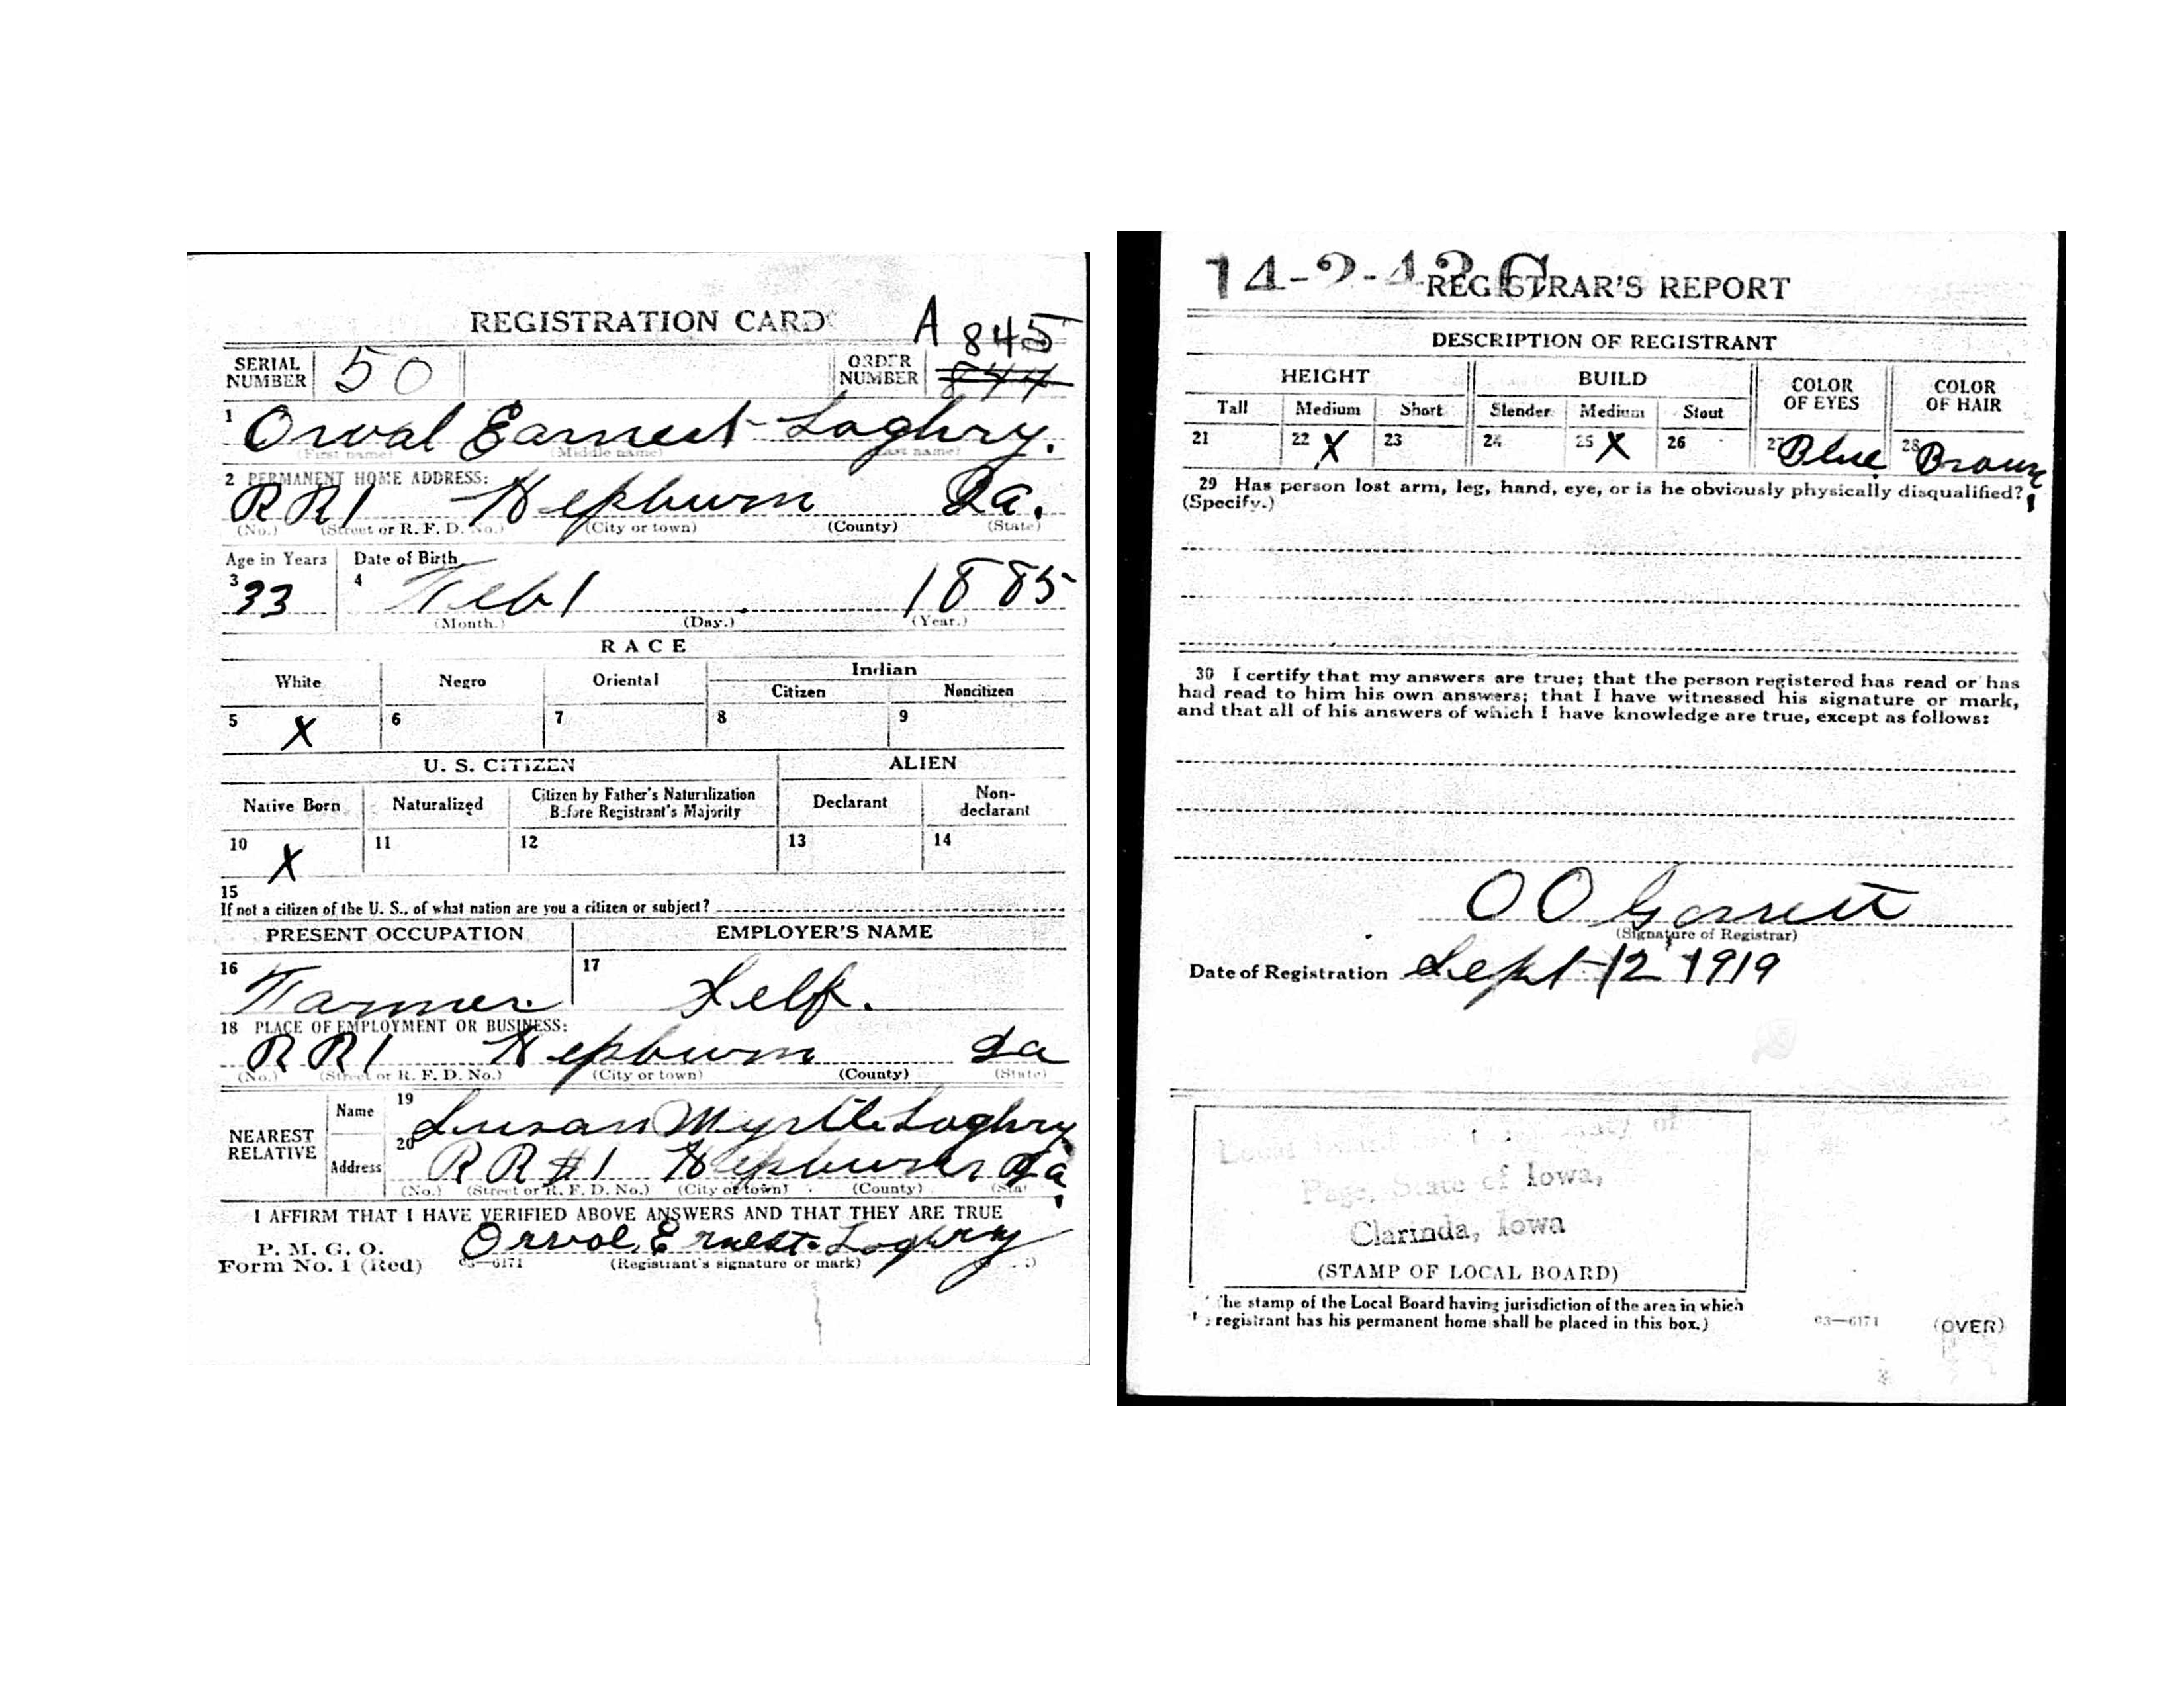 REGISTRATION CARD
A 845
SERIAL NUMBER 50 ORDER NUMBER 844
1 Orval Earnest Loghry.
(First name) (Middle name) (Last name)
2 PERMANENT HOME ADDRESS:
RR1 Hepburn Ia.
(No.) (Street or R. F. D. No.) (City or town) (County) (State)
Age in Years Date of Birth
3 33 4 Feb 1 1885
(Month.) (Day.) (Year.)
RACE
White Negro Oriental Indian
Citizen Noncitizen
5 X 6 7 8 9
U. S. CITIZEN ALIEN
Native Born Naturalized Citizen by Father's Naturalization Before Registrant's Majority Declarant Non-declarant
10 X 11 12 13 14
15
If not a citizen of the U. S., of what nation are you a citizen or subject?
PRESENT OCCUPATION EMPLOYER'S NAME
16 Farmer. 17 Self.
18 PLACE OF EMPLOYMENT OR BUSINESS:
RR1 Hepburn Ia
(No.) (Street or R. F. D. No.) (City or town) (County) (State)
NEAREST RELATIVE
Name 19 Susan Myrtle Loghry
Address 20 RR#1 Hepburn Ia
(No.) (Street or R. F. D. No.) (City or town) (County)
I AFFIRM THAT I HAVE VERIFIED ABOVE ANSWERS AND THAT THEY ARE TRUE
P. M. G. O.
Form No. 1 (Red) 03—6171 Orval Ernest Loghry
(Registrant's signature or mark)
14-2-42 C
REGISTRAR'S REPORT
DESCRIPTION OF REGISTRANT
HEIGHT BUILD COLOR OF EYES COLOR OF HAIR
Tall Medium Short Slender Medium Stout
21 22 X 23 24 25 X 26 27 Blue 28 Brown
29 Has person lost arm, leg, hand, eye, or is he obviously physically disqualified?
(Specify.)
30 I certify that my answers are true; that the person registered has read or has
had read to him his own answers; that I have witnessed his signature or mark,
and that all of his answers of which I have knowledge are true, except as follows:
O O Garrett
(Signature of Registrar)
Date of Registration Sept 12 1919
Local of
Page, State of Iowa,
Clarinda, Iowa
(STAMP OF LOCAL BOARD)
he stamp of the Local Board having jurisdiction of the area in which
registrant has his permanent home shall be placed in this box.)
03—6171 (OVER)